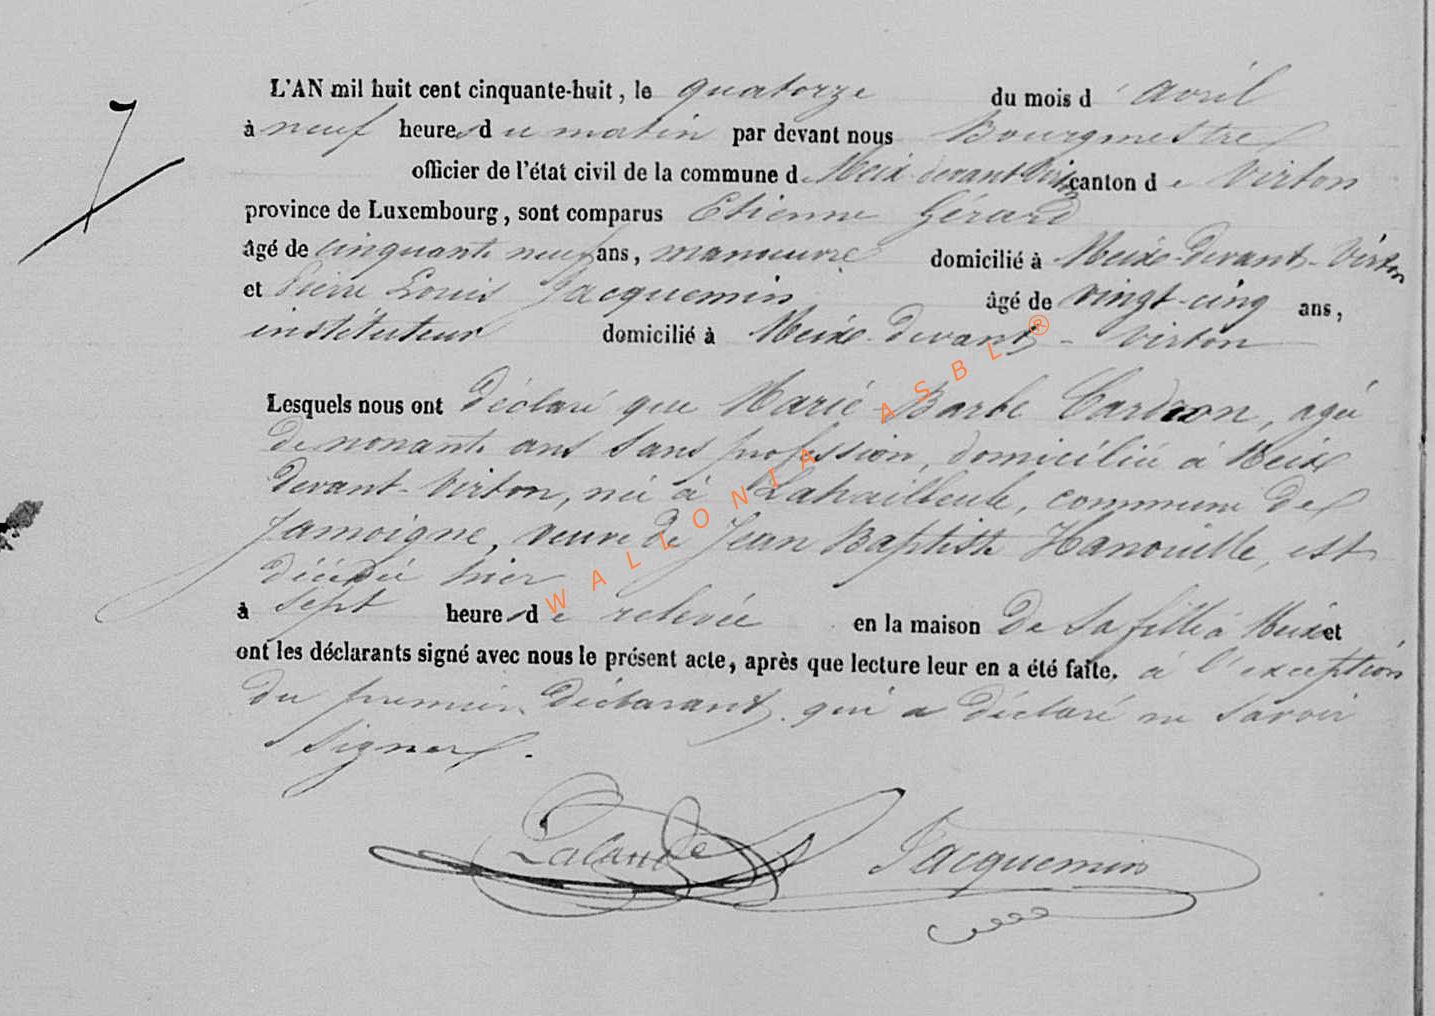 7
L'AN mil huit cent cinquante-huit, le quatorze du mois d'avril
à neuf heures du matin par devant nous Bourgmestre
officier de l'état civil de la commune de Meix-devant-Virton canton de Virton
province de Luxembourg, sont comparus Etienne Gérard
âgé de cinquante neuf ans, manœuvre domicilié à Meix-devant-Virton
et Pierre Louis Jacquemin, âgé de vingt-cinq ans,
instituteur domicilié à Meix-devant-Virton
Lesquels nous ont déclaré que Marie Barbe Cardron, agée
de nonante ans sans profession, domiciliée à Meix
devant-Virton, née à Lahailleule, commune de
Jamoigne, veuve de Jean Baptiste Hanouille, est
décédée hier
à sept heures de relevée en la maison de sa fille à Meix et
ont les déclarants signé avec nous le présent acte, après que lecture leur en a été faite. à l'exception
du premier déclarant, qui a déclaré ne savoir
signer.
Lalande Jacquemin
WALLONIA ASBL ®